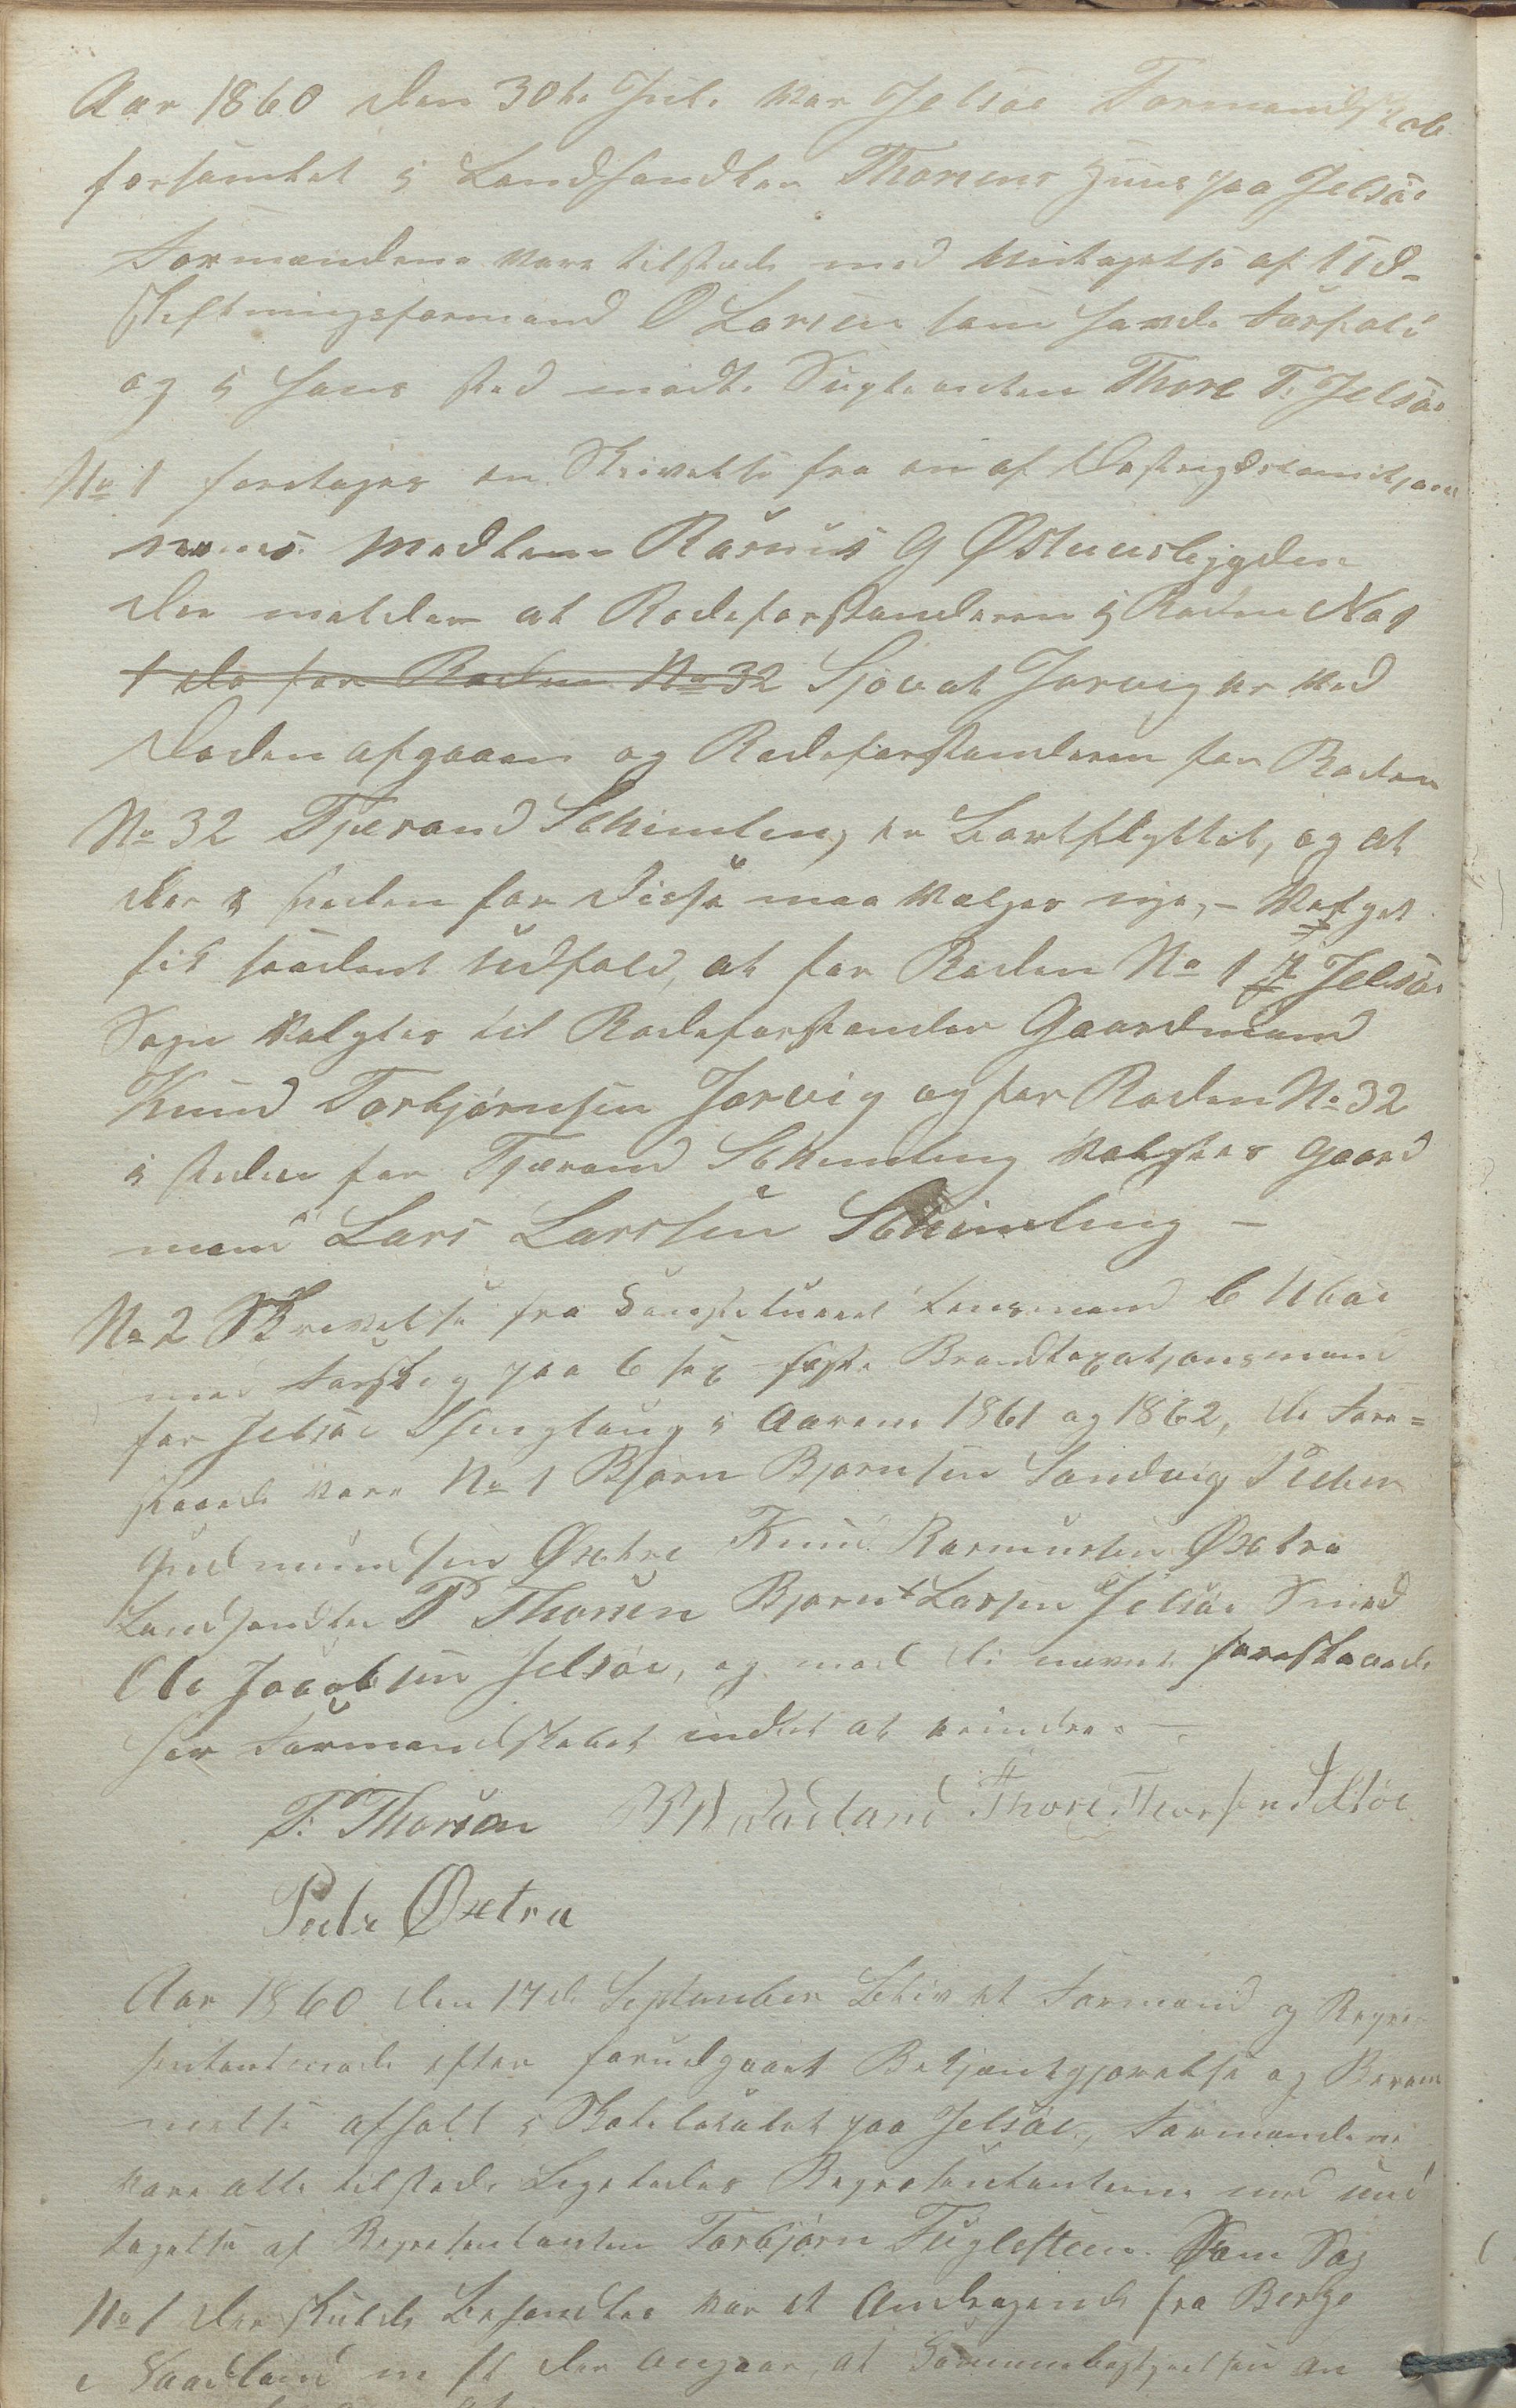 Aar 1860 den 30te Juli var Jelsöe Formandskab
forsamlet i Landhandler Thorsens Huus paa Jelsöe
Formændene vare tilstede med Undtagelse af Ud-
skiftningsformand O Larsen som havde Forfald
og i hans sted mødte Supleanten Thore T. Jelsöe
No 1 foretoges en Skrivelse fra en af Fattigcommissjo
nens Medlem Rasmus G Østhuusbygden
der melder at Rodeforstanderen i Roden No 1
1 do for Roden No 32 Sjovat Jorvig er ved
Døden afgaaen og Rodeforstanderen for Roden
No 32 Tjerand Schimling er bortflyttet, og at
der i steden for Disse maa vælges nye, - Valget
fik saadant Udfald, at for Roden No 1 i Jelsöe
Sogn valgtes til Rodeforstander Gaardmand
Knud Torbjörnsen Jorvig og for Roden No 32
i steden for Tjerand Schimling valgtes Gaard
mand Lars Larssen Schimling -
No 2 Skrivelse fra Constitueret Lensmand
med Forslag paa 6 sex faste Brandtaxatjonsmænd
for Jelsöe Thinglaug i Aarene 1861 og 1862, de Fore=
slaaede vare No 1 Bjørn Bjørnsen Sandvig Peder
Gudmundsen Øxtre Knud Rasmussen Øxtra
Landhandler P Thorsen Bjørn Larsen Jelsöe Smed
Ole Jacobsen Jelsöe, og mod de nævnte foreslaaede
har Formandskabet indtet at erindre. -
T. Thorsen Thore Thorsen Jelsöe
Peder Øxtra
Aar 1860 den 17de September blev et Formand og Repre-
sentantmøde efter forudgaaet Bekjentgjørelse og Beram
melse afholt i Skolelokalet paa Jelsöe, Formændene
vare alle tilstede Ligeledes Representanterne med und
tagelse af Representanten Torbjörn Fuglesteen. Som Sag
No 1 der skulde behandles var et Andragende fra Berge
i Vaadland der angaar, at Commubestyrelsen an